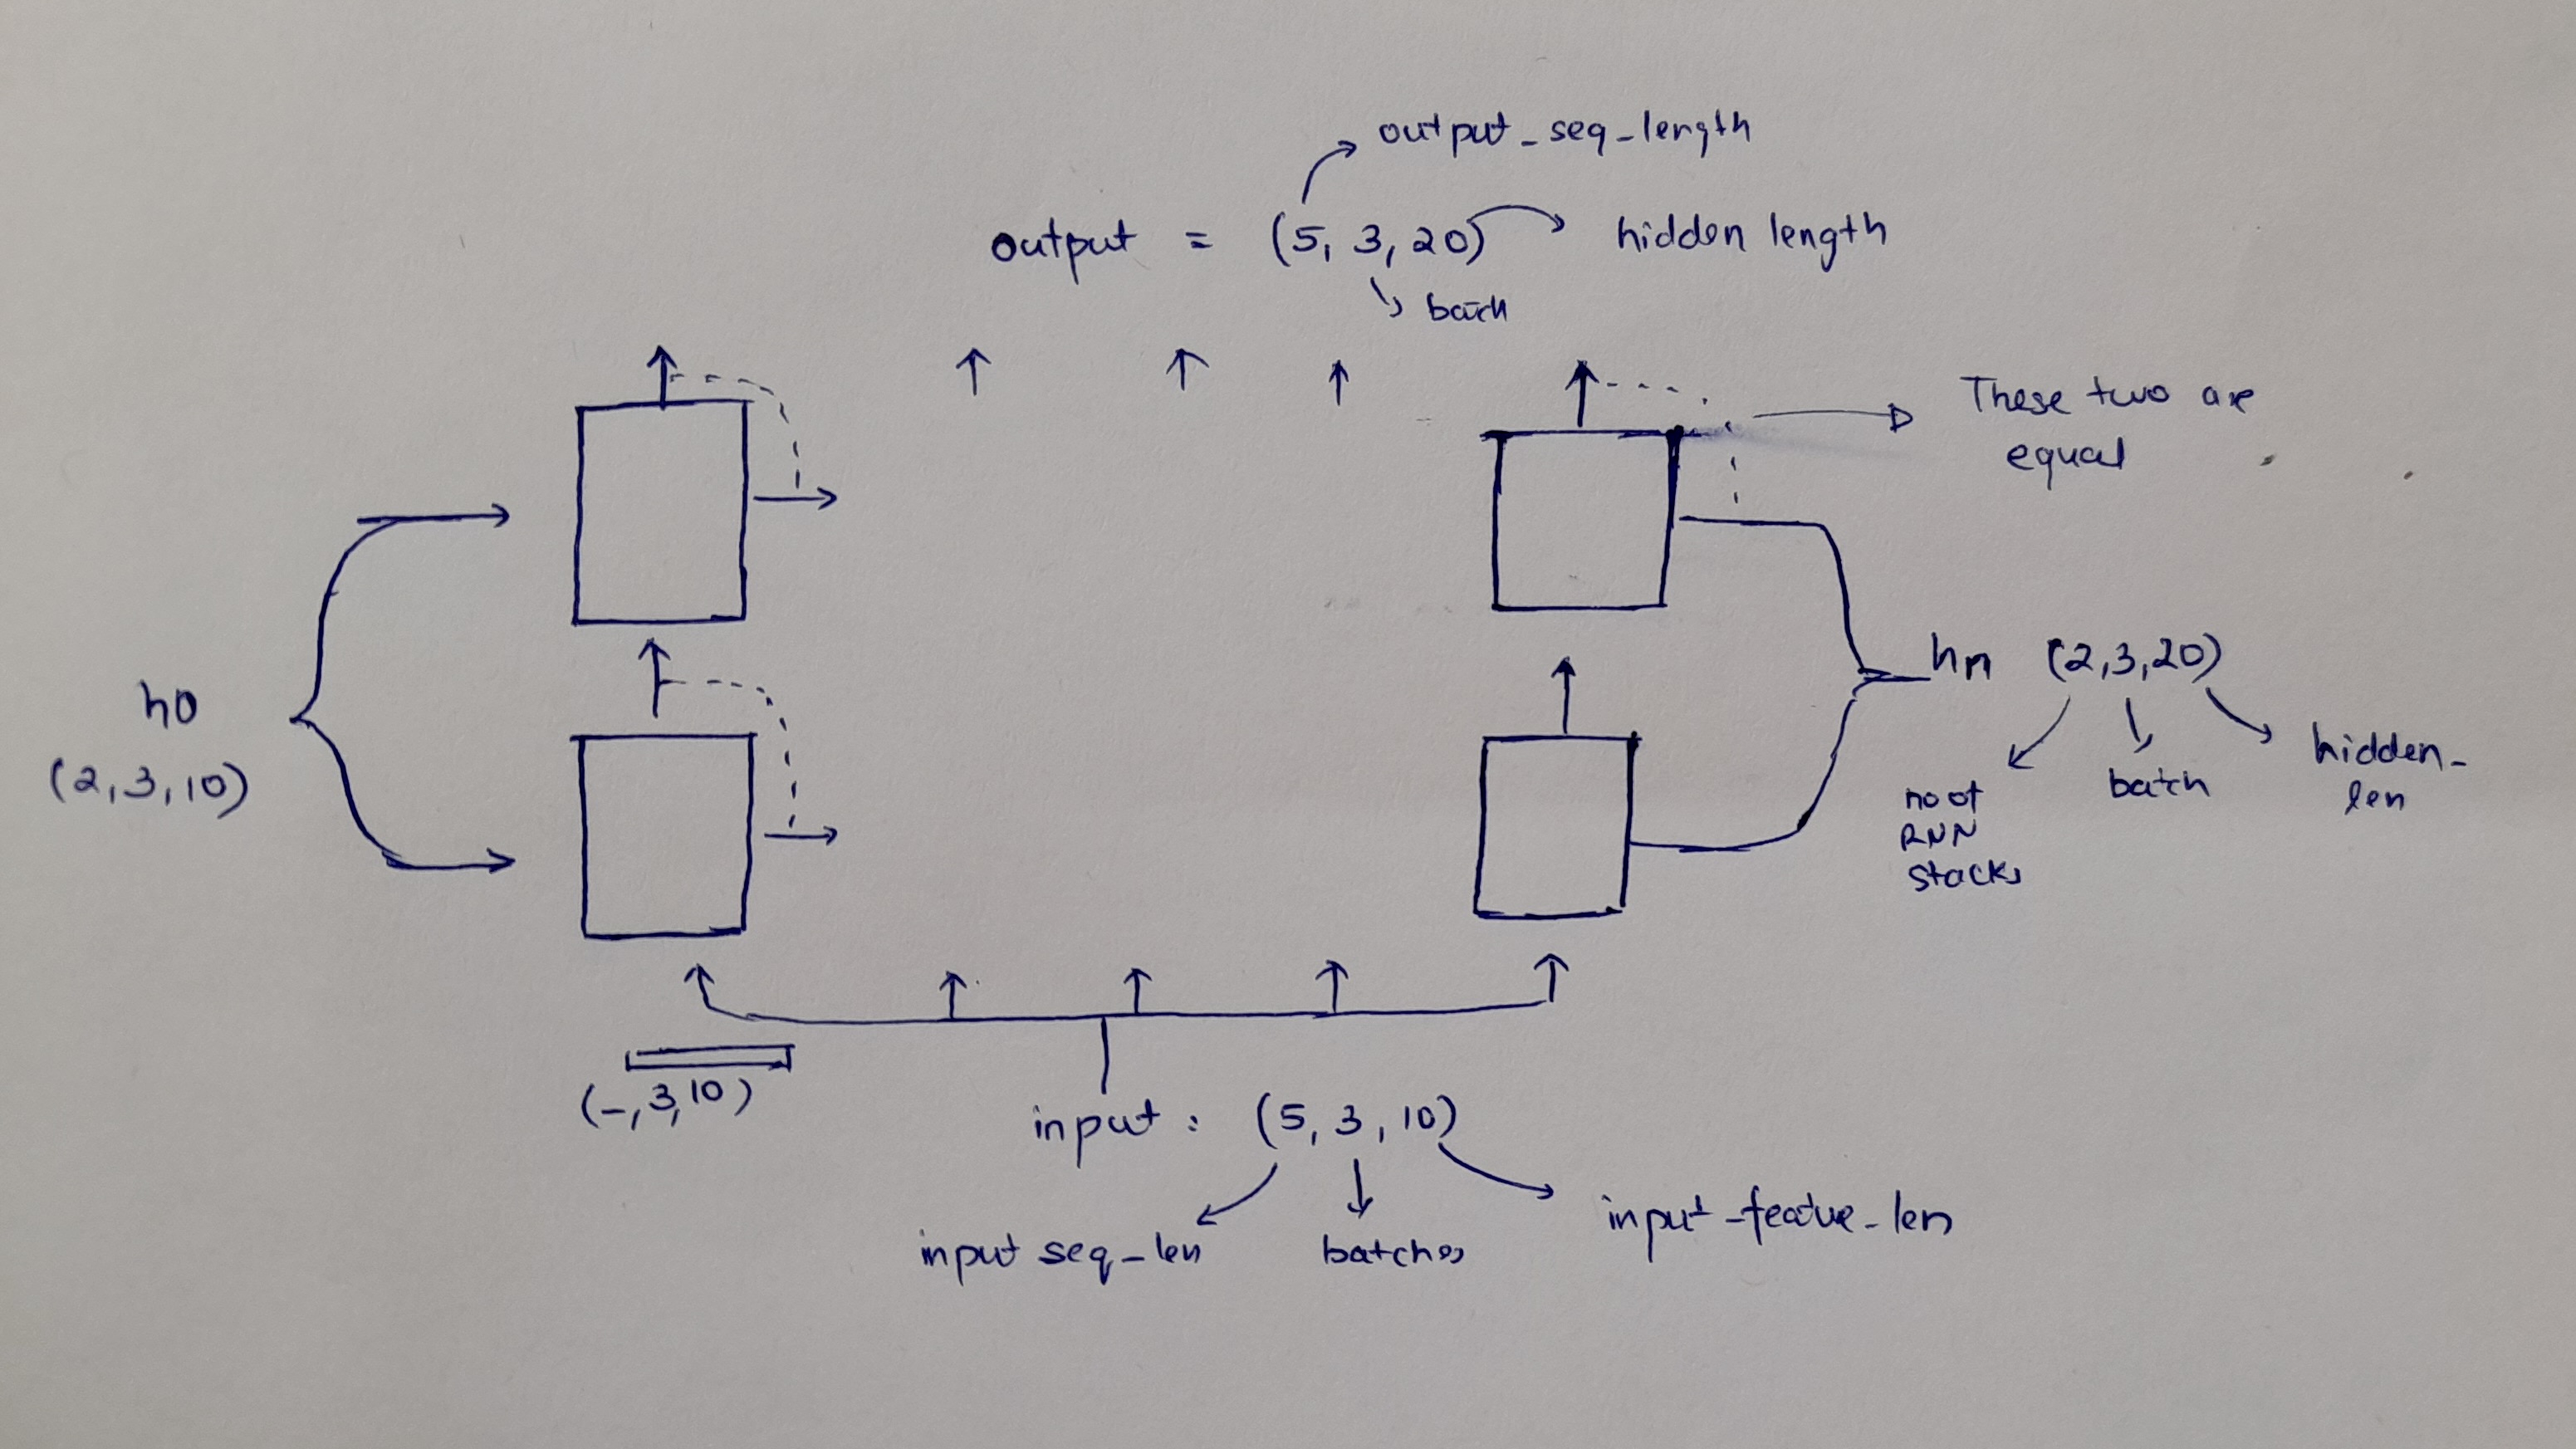 output_seq_length
output = (5, 3, 20) hidden length
batch
These two are
equal
h0
(2,3,10)
hn (2,3,20)
no of
RNN
stacks
batch
hidden-
len
(-, 3,10)
input : (5, 3, 10)
input seq-len
batches
input-feature-len